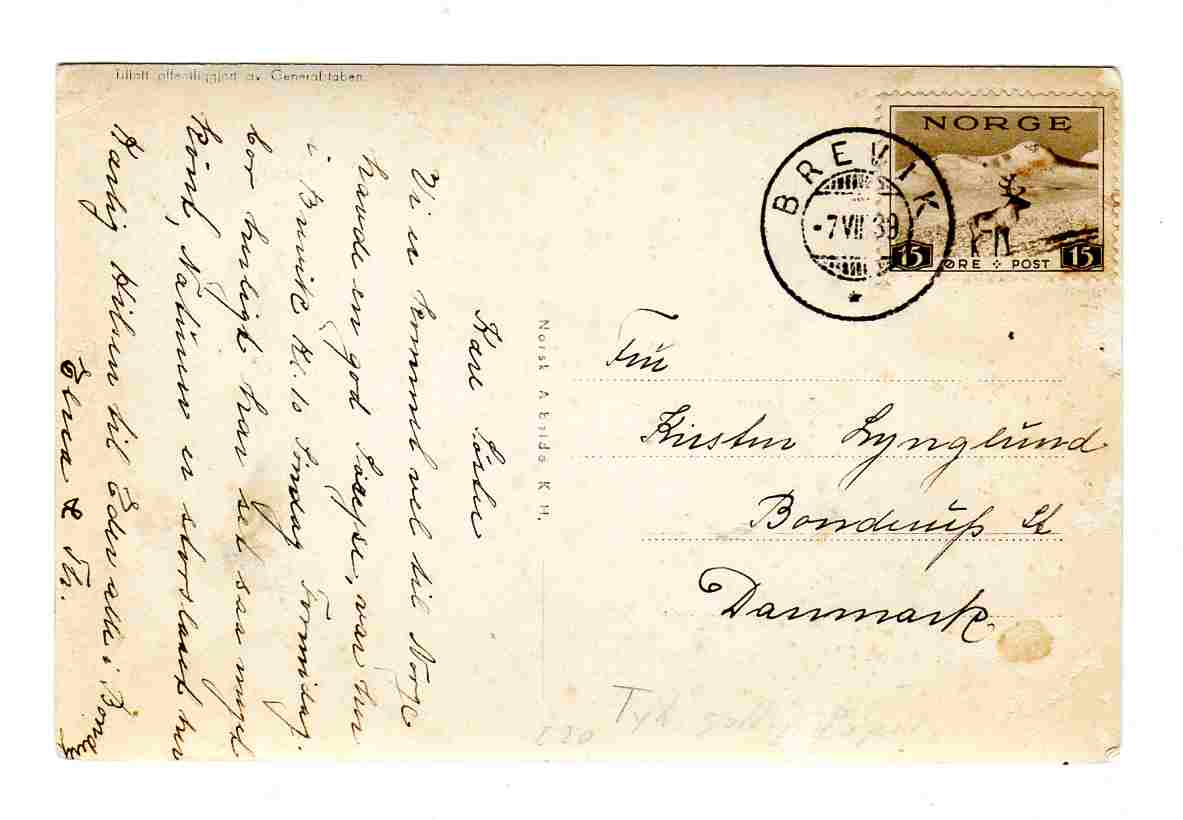 Tillatt offentliggjort av Generalstaben.
Kære Søster
Vi er kommet vel til Norge
havde en god Rejse, var her
i Brevik Kl. 10 Søndag Formidag.
her har set saa meget
kønt, Naturen er storslaaet her
Kærlig Hilsen til Eder alle i
Elna &
Norsk K M.
NORGE
15 ØRE POST 15
BREVIK
-7 VII 39
Fru
Kirsten Lynglund
Bonderup St
Danmark.
Tyk